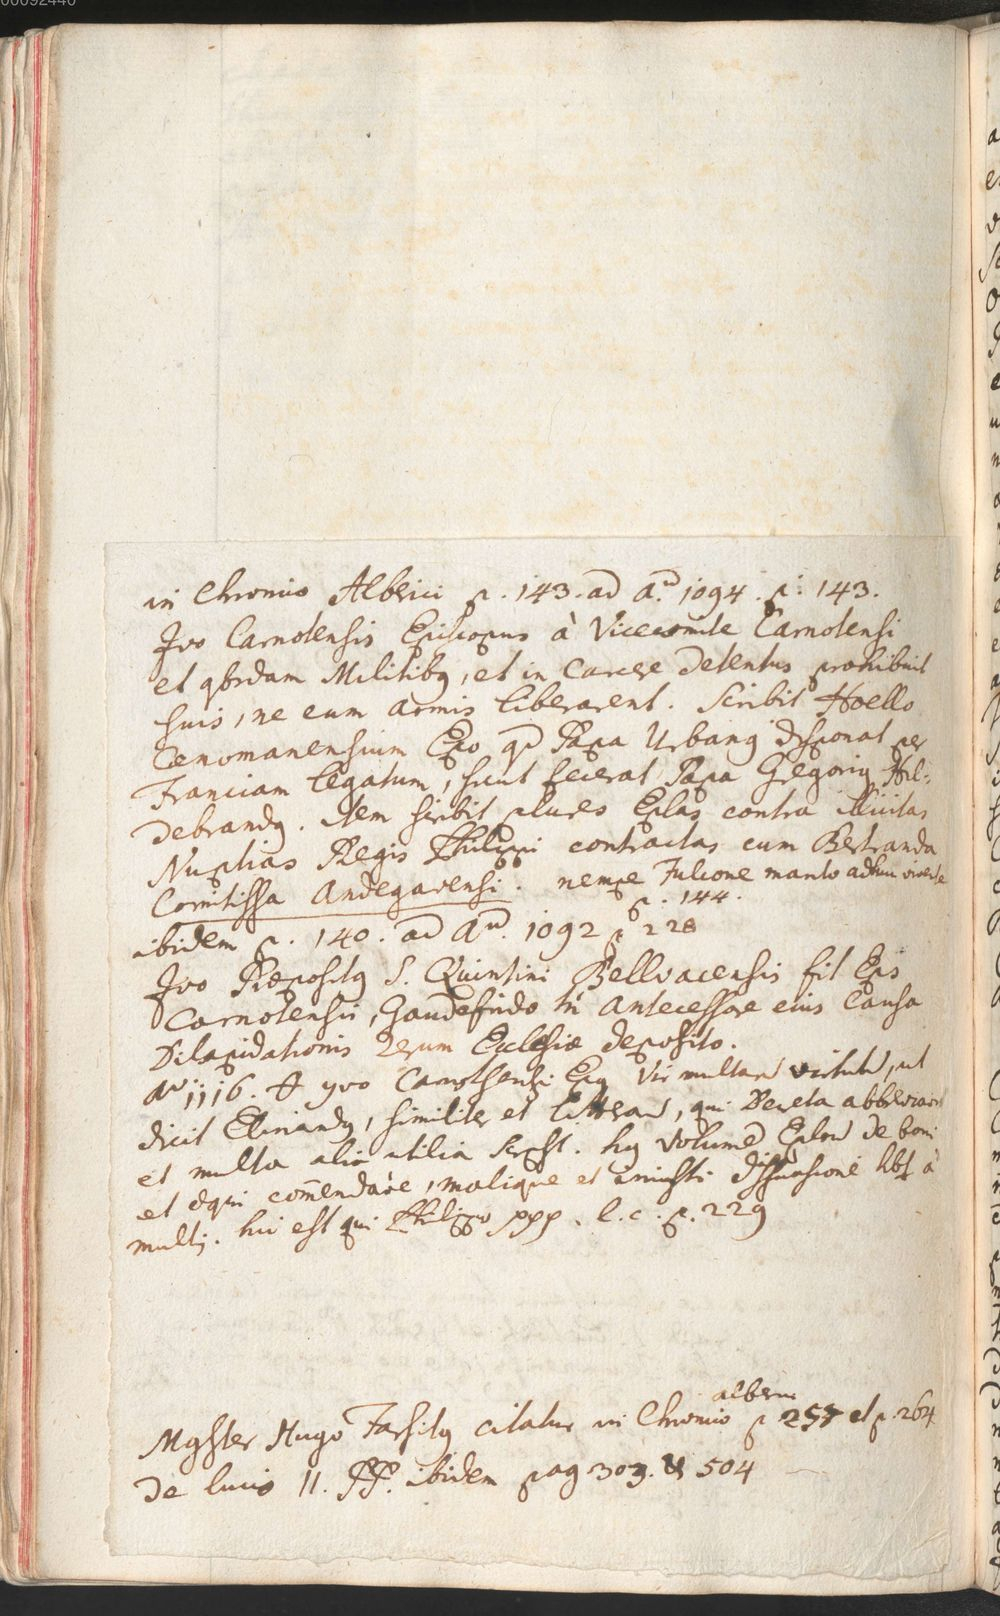 00092440
in Chronico Alberici p. 143. ad aᵐ 1094. p: 143.
Jvo Carnotensis Episcopus à Vicecomite Carnotensi
et qbrdam Militibq, et in Carcere detentus prohibuit
suis, ne eum armis liberarent. Scribit Hoello
Cenomanensium Epo qd Papa Urbanq disponat per
Franciam legatum, sicut fecerat Papa Gregoriq Hil-
debrandq. Item scribit plures Eplas contra illicitas
Nuptias Regis Philippi contractas cum Bertranda
Comitissa Andegavensi. nempe Fulcone marito adhuc vivente
p. 144.
ibidem p. 140. ad Aᵐ. 1092 p 228
Jvo Præpositq S. Quintini Bellvacensis fit Eps
Carnotensis, Gaudefrido Antecessore eius Causa
Dilapidationis rerum Ecclesiæ deposito.
aº 1116. Yvo Carnothensis Epq Vir multarᵈ virtutᵈ, ut
dicit Elinandq, similiter et litterarᵈ, qui Decreta abbreviavit
et multa alia utilia scripsit. hq Volumeᵈ Eplarᵈ de boni
et æqui com̄endare, malique et iniusti dissuasione hbt à
multis. hic est qui Philippo ppp. l. c. p. 229
alberici
Mgster Hugo Farsitq citatur in Chronico p 257 et p. 264
De lucio II. PP. ibidem pag 303. & 504